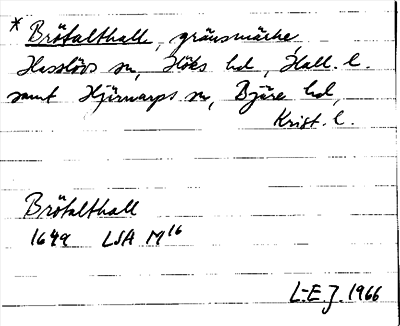 * Brötalthall, gränsmärke,
Hasslövs sn, Höks hd, Hall. l.
samt Hjärnarps sn, Bjäre hd,
Krist. l.
Brötalthall
1649 LSA M16
L-E J. 1966